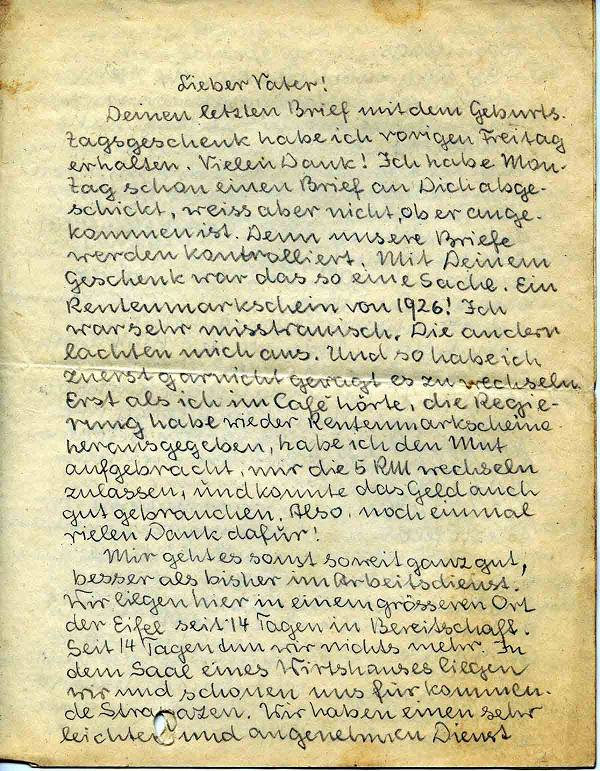 Lieber Vater!
Deinen letzten Brief mit dem Geburts-
tagsgeschenk habe ich vorigen Freitag
erhalten. Vielen Dank! Ich habe Mon-
tag schon einen Brief an Dich abge-
schickt, weiss aber nicht, ob er ange-
kommen ist. Denn unsere Briefe
werden kontrolliert. Mit Deinem
Geschenk war das so eine Sache. Ein
Rentenmarkschein von 1926! Ich
war sehr misstrauisch. Die andern
lachten mich aus. Und so habe ich
zuerst garnicht gewagt es zu wechseln.
Erst als ich im Café hörte, die Regie-
rung habe wieder Rentenmarkscheine
herausgegeben, habe ich den Mut
aufgebracht, mir die 5 RM wechseln
zulassen, und konnte das Geld auch
gut gebrauchen. Also, noch einmal
vielen Dank dafür!
Mir geht es sonst soweit ganz gut,
besser als bisher im Arbeitsdienst.
Wir liegen hier in einem grösseren Ort
der Eifel seit 14 Tagen in Bereitschaft.
Seit 14 Tagen tun wir nichts mehr. In
dem Saal eines Wirtshauses liegen
wir und schonen uns für kommen-
de Strapazen. Wir haben einen sehr
leichten und angenehmen Dienst